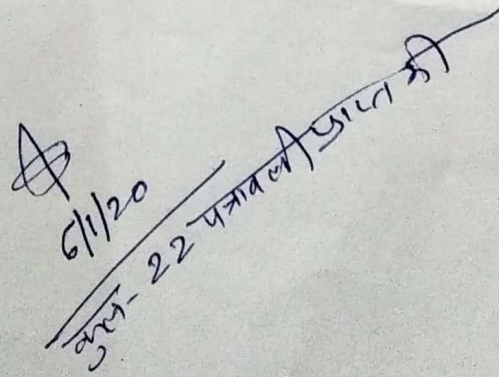 6/1/20
कुल- 22 पत्रावली प्राप्त की